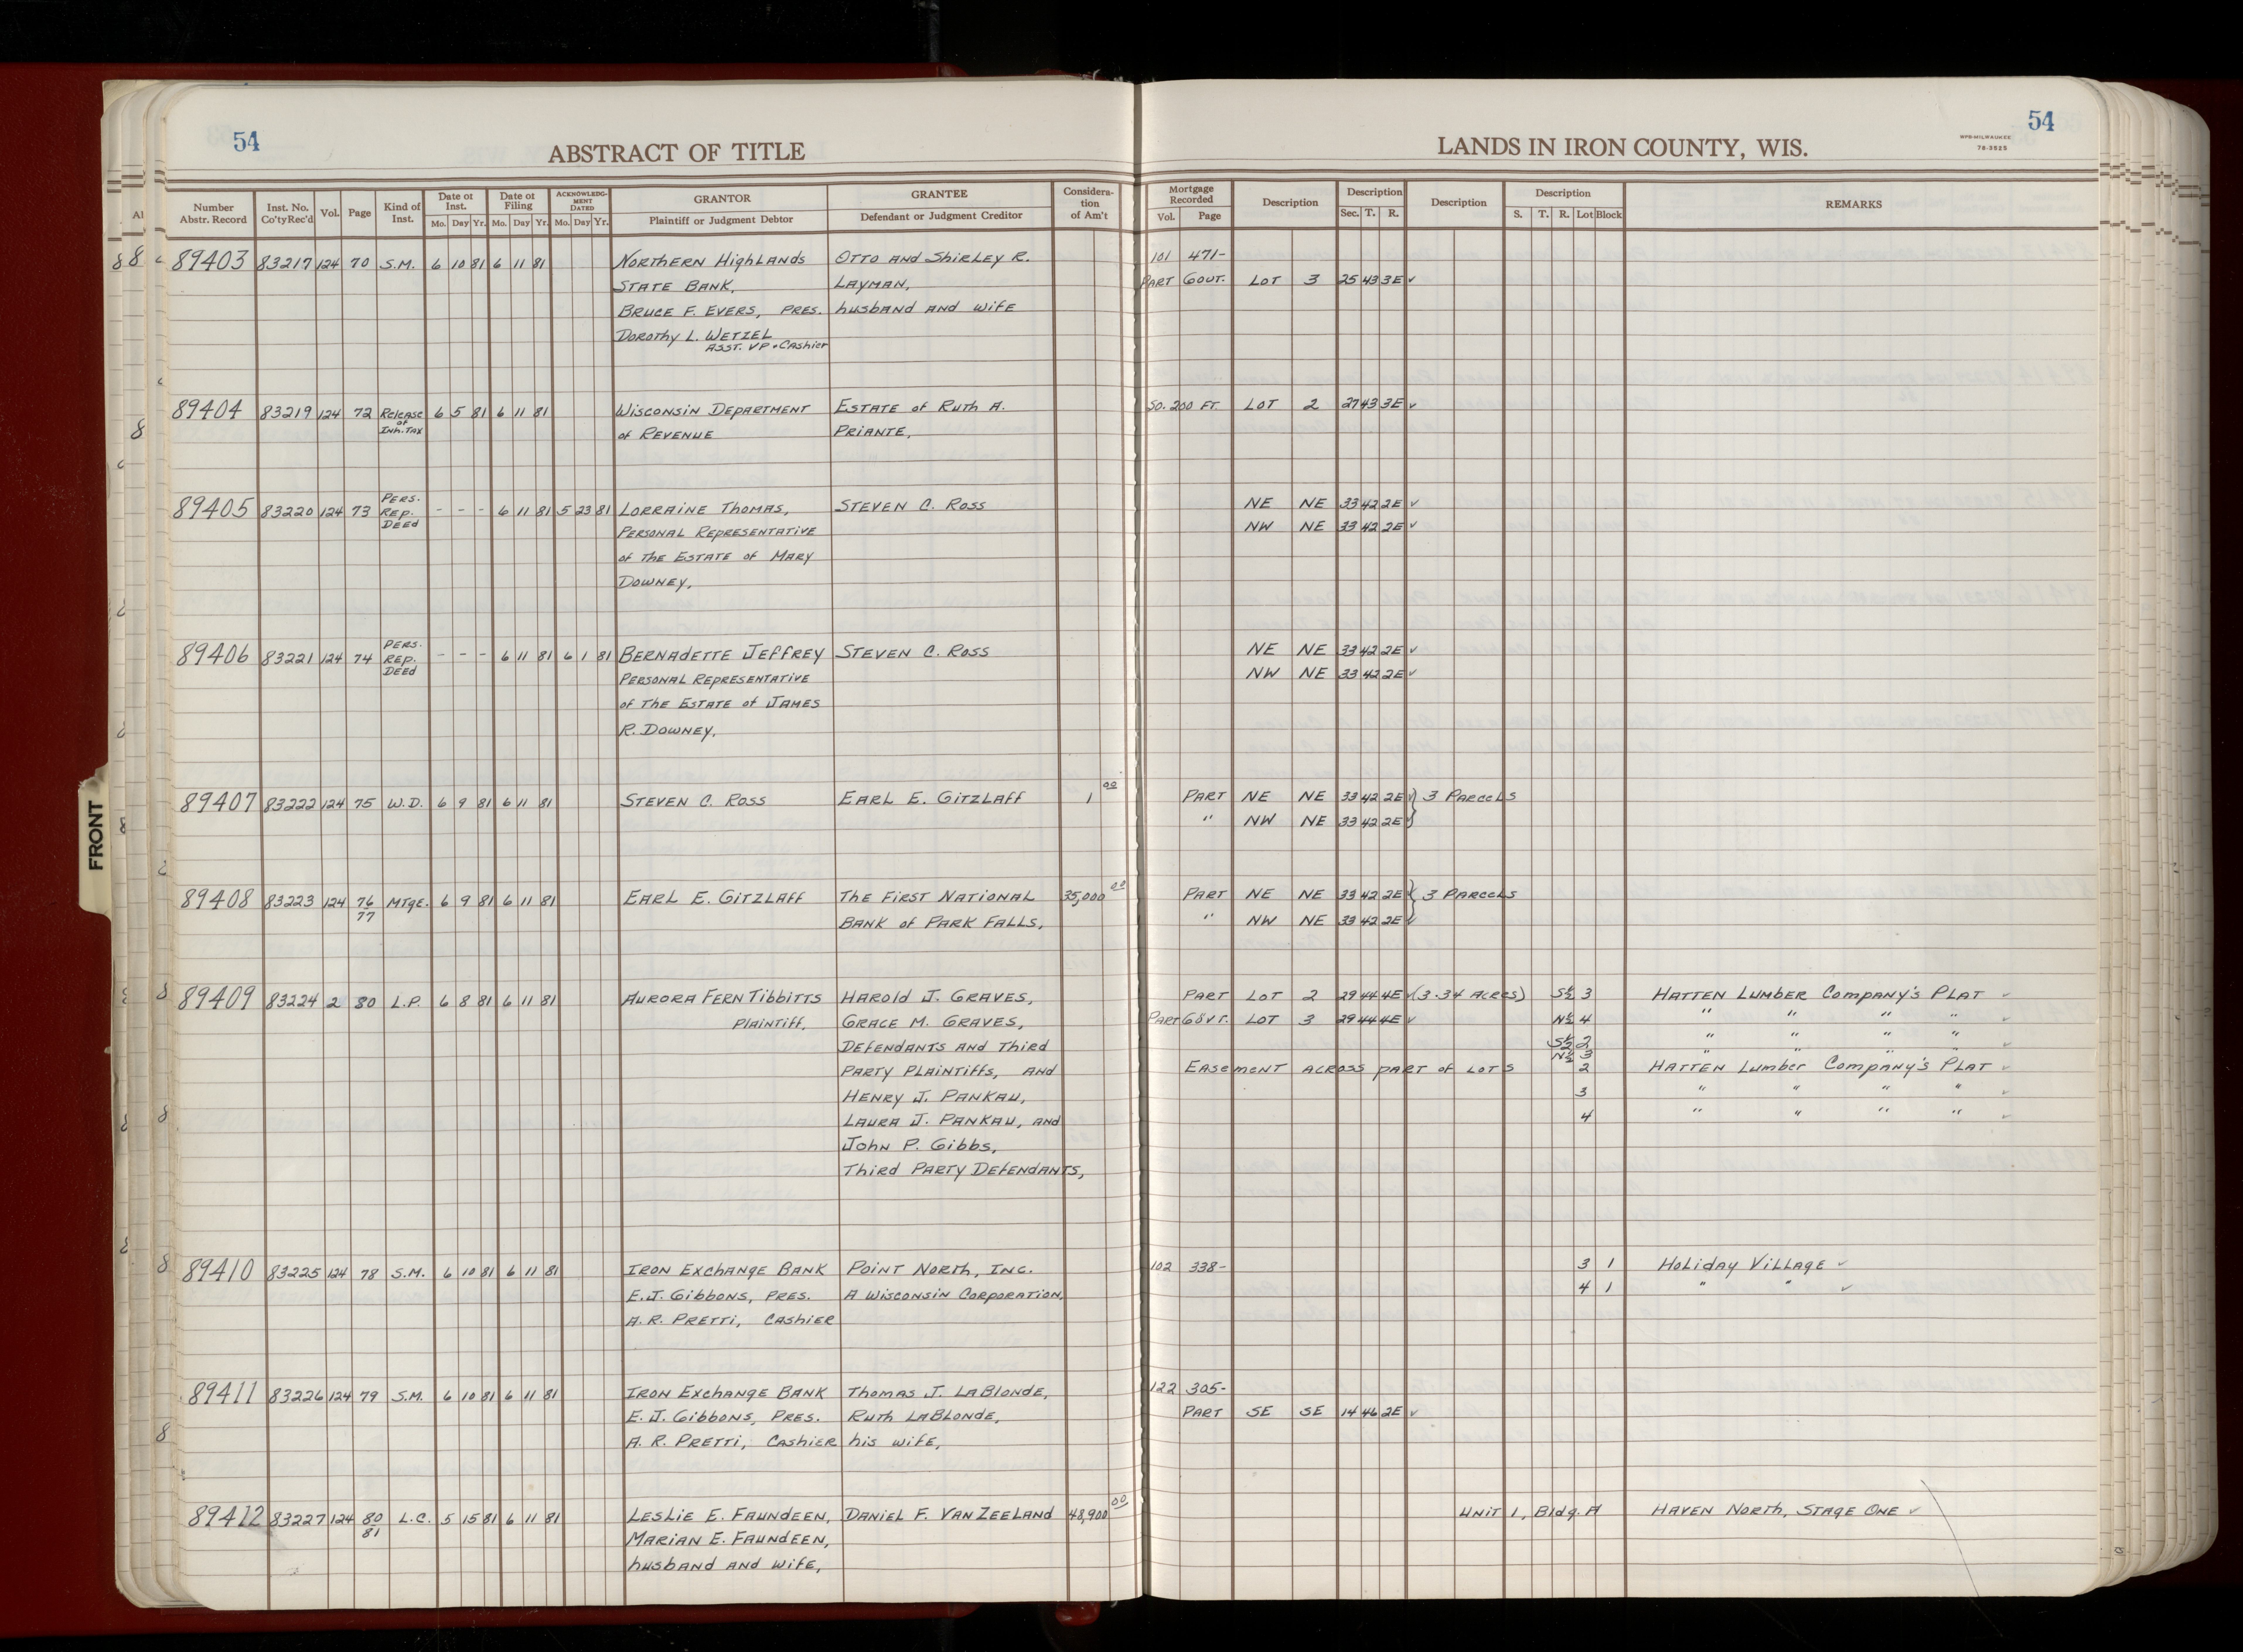 54
ABSTRACT OF TITLE
LANDS IN IRON COUNTY, WIS.
WPB-MILWAUKEE
78-3525
54
Number Abstr. Record | Inst. No. Co'ty Rec'd | Vol. | Page | Kind of Inst. | Date of Inst. Mo. Day Yr. | Date of Filing Mo. Day Yr. | ACKNOWLEDGMENT DATED Mo. Day Yr. | GRANTOR Plaintiff or Judgment Debtor | GRANTEE Defendant or Judgment Creditor | Consideration of Am't | Mortgage Recorded Vol. Page | Description | Description Sec. T. R. | Description | Description S. T. R. Lot Block | REMARKS
89403 83217 124 70 S.M. 6 10 81 6 11 81 Northern Highlands Otto and Shirley R. 101 471-
State Bank, Layman, Part Govt. Lot 3 25 43 3E ✓
Bruce F. Evers, Pres. husband and wife
Dorothy L. Wetzel
Asst. VP & Cashier
89404 83219 124 72 Release of Inh. Tax 6 5 81 6 11 81 Wisconsin Department Estate of Ruth A. So. 200 Ft. Lot 2 27 43 3E ✓
of Revenue Priante,
89405 83220 124 73 Pers. Rep. Deed - - - 6 11 81 5 23 81 Lorraine Thomas, Steven C. Ross NE NE 33 42 2E ✓
Personal Representative NW NE 33 42 2E ✓
of the Estate of Mary
Downey,
89406 83221 124 74 Pers. Rep. Deed - - - 6 11 81 6 1 81 Bernadette Jeffrey Steven C. Ross NE NE 33 42 2E ✓
Personal Representative NW NE 33 42 2E ✓
of the Estate of James
R. Downey,
89407 83222 124 75 W.D. 6 9 81 6 11 81 Steven C. Ross Earl E. Gitzlaff 1 00 Part NE NE 33 42 2E ✓ } 3 Parcels
" NW NE 33 42 2E ✓
89408 83223 124 76 77 Mtge. 6 9 81 6 11 81 Earl E. Gitzlaff The First National 35,000 00 Part NE NE 33 42 2E ✓ } 3 Parcels
Bank of Park Falls, " NW NE 33 42 2E ✓
89409 83224 2 80 L.P. 6 8 81 6 11 81 Aurora Fern Tibbitts Harold J. Graves, Part Lot 2 29 44 4E ✓ (3.34 Acres) S½ 3 Hatten Lumber Company's Plat ✓
Plaintiff, Grace M. Graves, Part Govt. Lot 3 29 44 4E ✓ N½ 4 " " " " ✓
Defendants and Third S½ 2 " " " " ✓
N½ 3 " " " "
Party Plaintiffs, and Easement across part of Lots 2 Hatten Lumber Company's Plat ✓
Henry J. Pankau, 3 " " " " ✓
Laura J. Pankau, and 4 " " " " ✓
John P. Gibbs,
Third Party Defendants,
89410 83225 124 78 S.M. 6 10 81 6 11 81 Iron Exchange Bank Point North, Inc. 102 338- 3 1 Holiday Village ✓
E.J. Gibbons, Pres. A Wisconsin Corporation, 4 1 " " ✓
A.R. Pretti, Cashier
89411 83226 124 79 S.M. 6 10 81 6 11 81 Iron Exchange Bank Thomas J. LaBlonde, 122 305-
E.J. Gibbons, Pres. Ruth LaBlonde, Part SE SE 14 46 2E ✓
A.R. Pretti, Cashier his wife,
89412 83227 124 80 81 L.C. 5 15 81 6 11 81 Leslie E. Faundeen, Daniel F. VanZeeland 48,900 00 Unit 1, Bldg. A Haven North, Stage One ✓
Marian E. Faundeen,
husband and wife,
FRONT